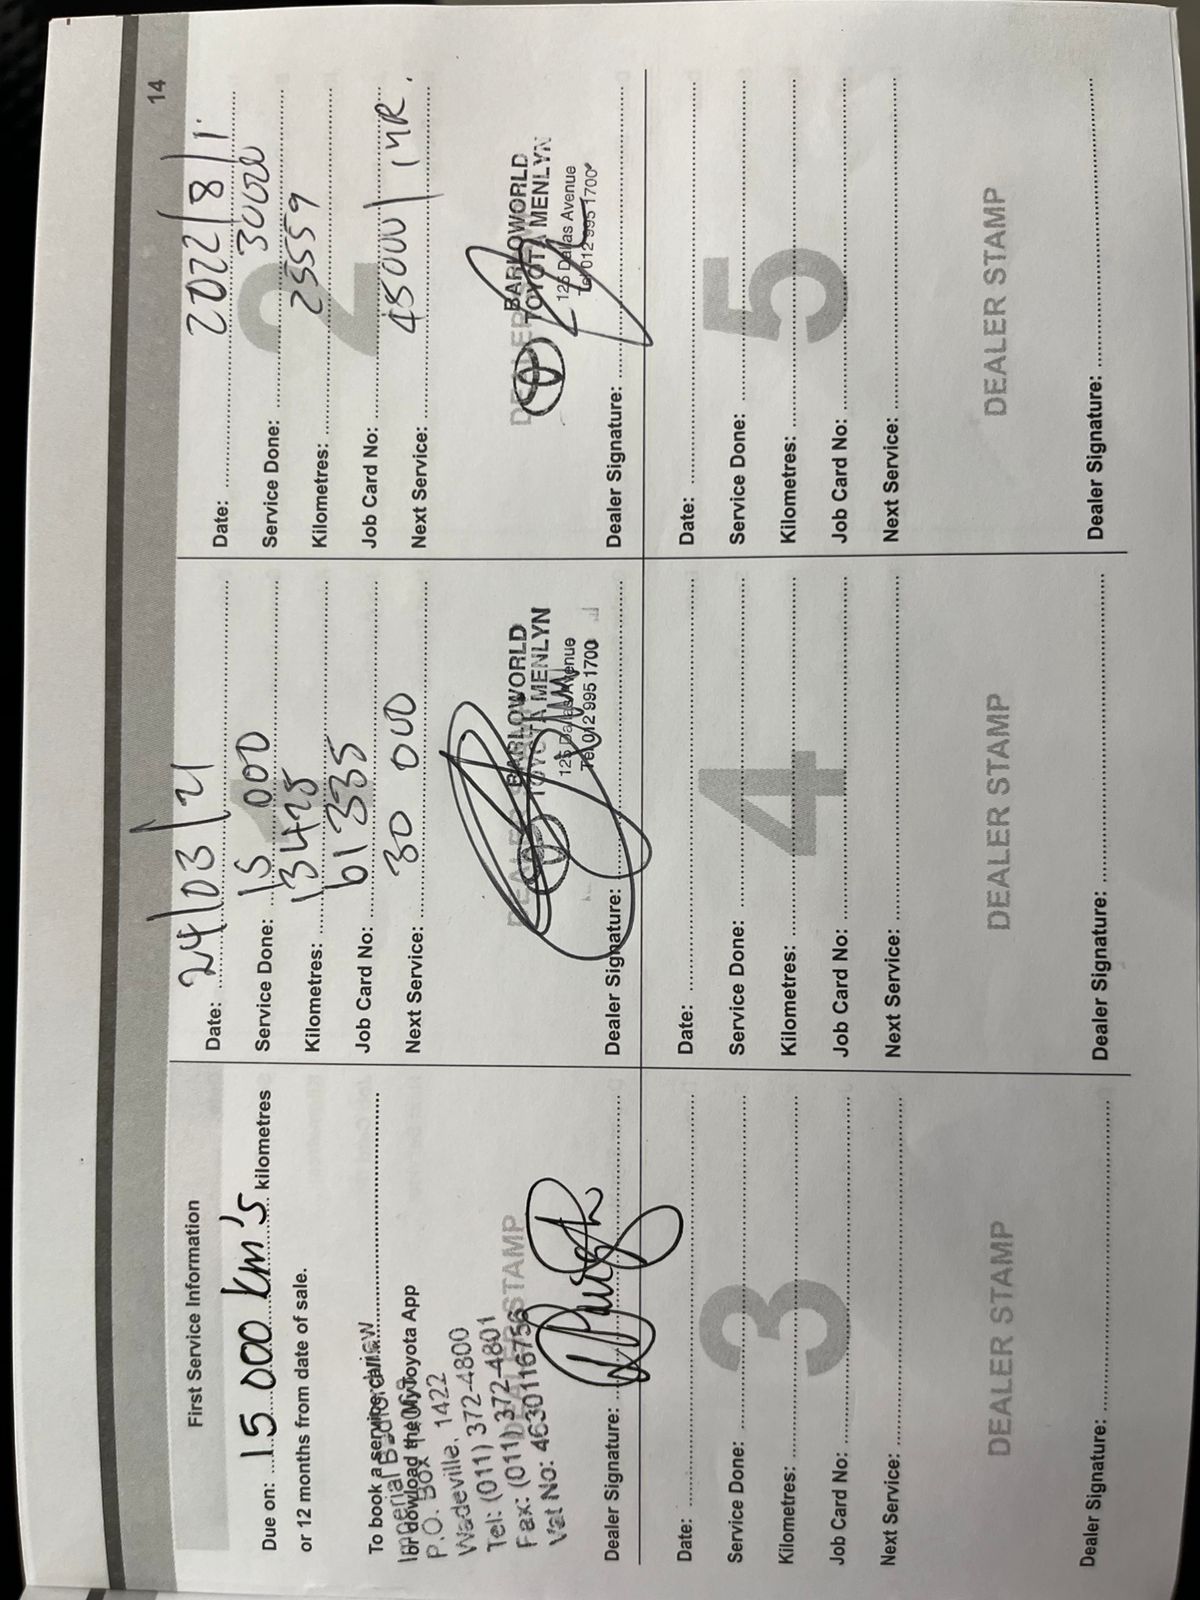 14
First Service Information
Due on: 15 000 km's kilometres
or 12 months from date of sale.
To book a service call
or download the MyToyota App
P.O. Box
Wadeville, 1422
Tel: (011) 372-4800
Fax: (011) 372-4801
Vat No: 4630116756
DEALER STAMP
Dealer Signature:
1
Date: 24/03/21
Service Done: 15 000
Kilometres: 13425
Job Card No: 61335
Next Service: 30 000
DEALER STAMP
BARLOWORLD
TOYOTA MENLYN
125 Dallas Avenue
Tel 012 995 1700
Dealer Signature:
2
Date: 2022/8/1
Service Done: 30000
Kilometres: 25559
Job Card No:
Next Service: 45000/1YR.
DEALER STAMP
BARLOWORLD
TOYOTA MENLYN
125 Dallas Avenue
Tel 012 995 1700
Dealer Signature:
3
Date:
Service Done:
Kilometres:
Job Card No:
Next Service:
DEALER STAMP
Dealer Signature:
4
Date:
Service Done:
Kilometres:
Job Card No:
Next Service:
DEALER STAMP
Dealer Signature:
5
Date:
Service Done:
Kilometres:
Job Card No:
Next Service:
DEALER STAMP
Dealer Signature: